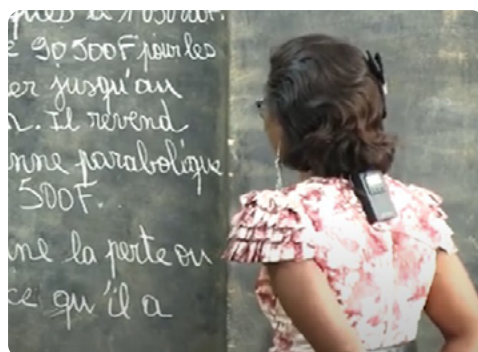 à 
90 500F pour les
er jusqu'au
n. Il revend
nne parabolique
500F.
ine la perte ou
ce qu'il a